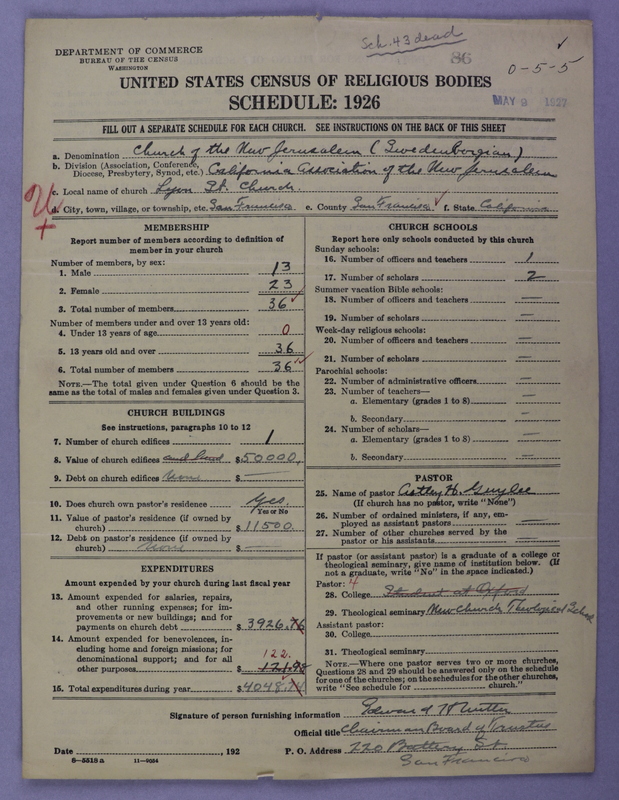 Sch. 43 dead
86
0-5-5
DEPARTMENT OF COMMERCE
BUREAU OF THE CENSUS
WASHINGTON
UNITED STATES CENSUS OF RELIGIOUS BODIES
SCHEDULE: 1926
MAY 9 1927
FILL OUT A SEPARATE SCHEDULE FOR EACH CHURCH. SEE INSTRUCTIONS ON THE BACK OF THIS SHEET
a. Denomination Church of the New Jerusalem (Swedenborgian)
b. Division (Association, Conference, Diocese, Presbytery, Synod, etc.) California Association of the New Jerusalem
c. Local name of church Lyon St. Church.
d. City, town, village, or township, etc. San Francisco e. County San Francisco f. State California
MEMBERSHIP
Report number of members according to definition of
member in your church
Number of members, by sex:
1. Male 13
2. Female 23
3. Total number of members 36
Number of members under and over 13 years old:
4. Under 13 years of age 0
5. 13 years old and over 36
6. Total number of members 36
NOTE.—The total given under Question 6 should be the
same as the total of males and females given under Question 3.
CHURCH BUILDINGS
See instructions, paragraphs 10 to 12
7. Number of church edifices 1
8. Value of church edifices and land $50000.
9. Debt on church edifices None $ —
10. Does church own pastor's residence Yes.
Yes or No
11. Value of pastor's residence (if owned by
church) $11500.
12. Debt on pastor's residence (if owned by
church) None $ —
EXPENDITURES
Amount expended by your church during last fiscal year
13. Amount expended for salaries, repairs,
and other running expenses; for im-
provements or new buildings; and for
payments on church debt $3926.76
14. Amount expended for benevolences, in-
cluding home and foreign missions; for
denominational support; and for all
122.
other purposes 121.98
15. Total expenditures during year $4048.74
CHURCH SCHOOLS
Report here only schools conducted by this church
Sunday schools:
16. Number of officers and teachers 1
17. Number of scholars 2
Summer vacation Bible schools:
18. Number of officers and teachers —
19. Number of scholars —
Week-day religious schools:
20. Number of officers and teachers —
21. Number of scholars —
Parochial schools:
22. Number of administrative officers —
23. Number of teachers—
a. Elementary (grades 1 to 8) —
b. Secondary —
24. Number of scholars—
a. Elementary (grades 1 to 8) —
b. Secondary —
PASTOR
25. Name of pastor H.
(If church has no pastor, write "None")
26. Number of ordained ministers, if any, em-
ployed as assistant pastors —
27. Number of other churches served by the
pastor or his assistants —
If pastor (or assistant pastor) is a graduate of a college or
theological seminary, give name of institution below. (If
not a graduate, write "No" in the space indicated.)
Pastor: 4
28. College Student at Oxford
29. Theological seminary New Church Theological School
Assistant pastor:
30. College
31. Theological seminary
NOTE.—Where one pastor serves two or more churches,
Questions 28 and 29 should be answered only on the schedule
for one of the churches; on the schedules for the other churches,
write "See schedule for church."
Signature of person furnishing information Edward
Official title Chairman Board of Trustees
Date , 192 P. O. Address 220 Battery St.
San Francisco
6—5518 a 11—9034